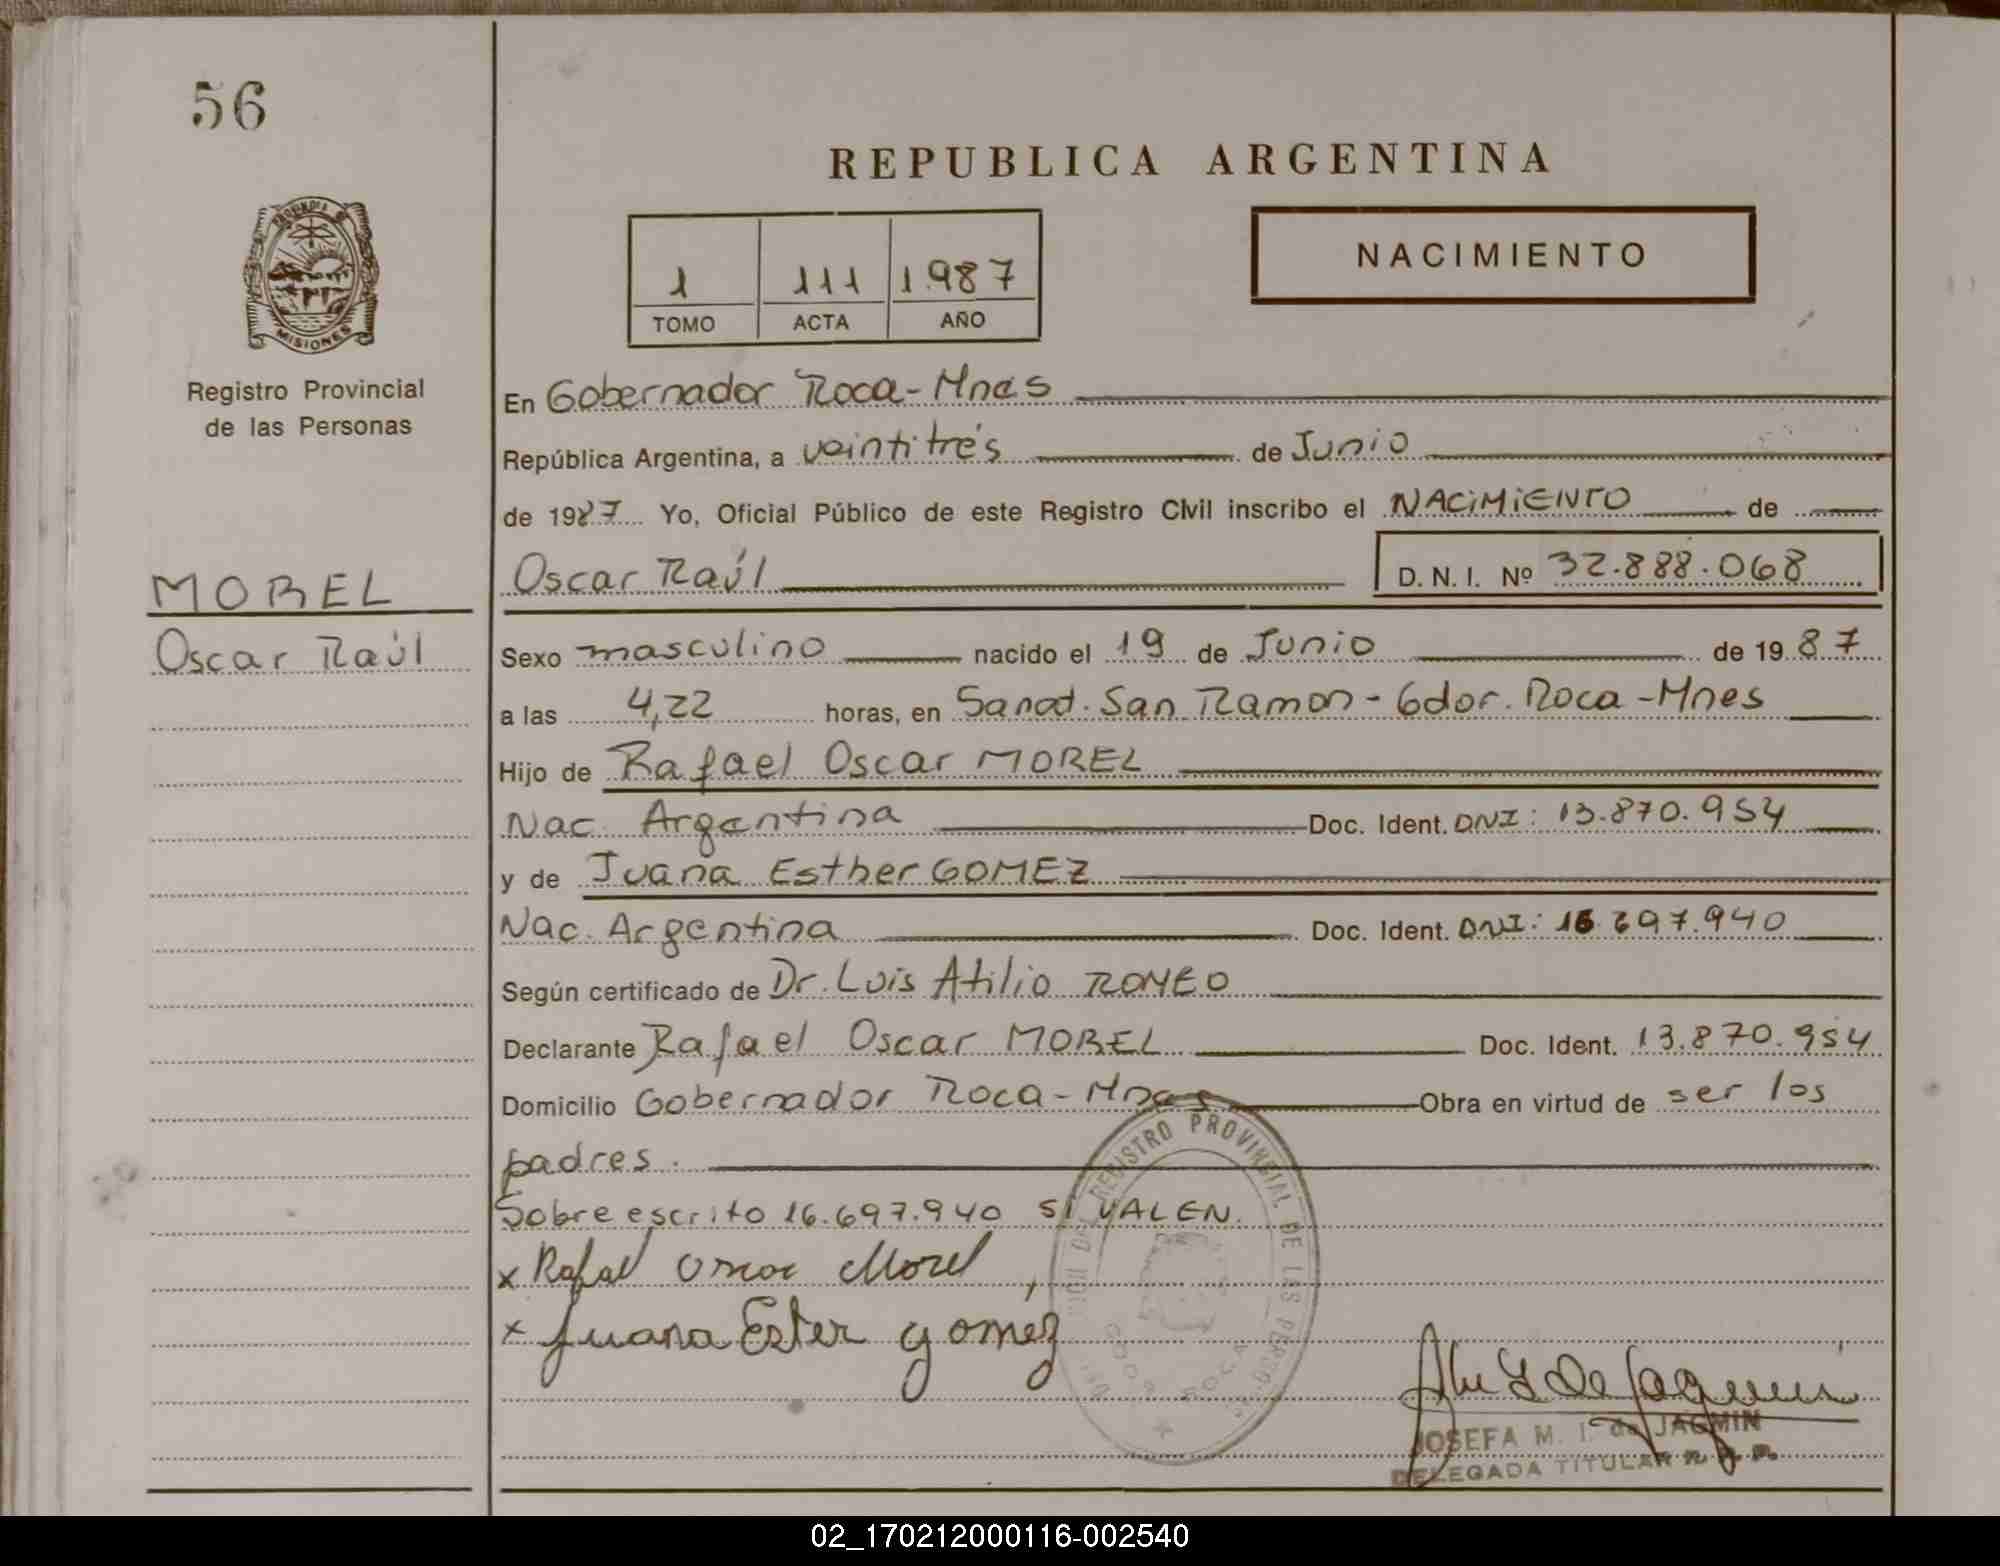 56
REPUBLICA ARGENTINA
PROVINCIA DE
MISIONES
Registro Provincial
de las Personas
1 111 1987
TOMO ACTA AÑO
NACIMIENTO
En Gobernador Roca - Mnes
República Argentina, a veintitrés de Junio
de 1987 Yo, Oficial Público de este Registro Civil inscribo el NACIMIENTO de
MOREL
Oscar Raúl
Oscar Raúl D.N.I. Nº 32.888.068
Sexo masculino nacido el 19 de Junio de 1987
a las 4,22 horas, en Sanat. San Ramon - Gdor. Roca - Mnes
Hijo de Rafael Oscar MOREL
Nac. Argentina Doc. Ident. DNI: 13.870.954
y de Juana Esther GOMEZ
Nac. Argentina Doc. Ident. DNI: 16.697.940
Según certificado de Dr. Luis Atilio ROMEO
Declarante Rafael Oscar MOREL Doc. Ident. 13.870.954
Domicilio Gobernador Roca - Mnes Obra en virtud de ser los
padres.
Sobre escrito 16.697.940 SI VALEN.
x Rafael Oscar Morel
x Juana Ester gomez
REGISTRO PROVINCIAL DE LAS PERSONAS
ROCA
JOSEFA M. I. de JAGMIN
DELEGADA TITULAR
02_170212000116-002540